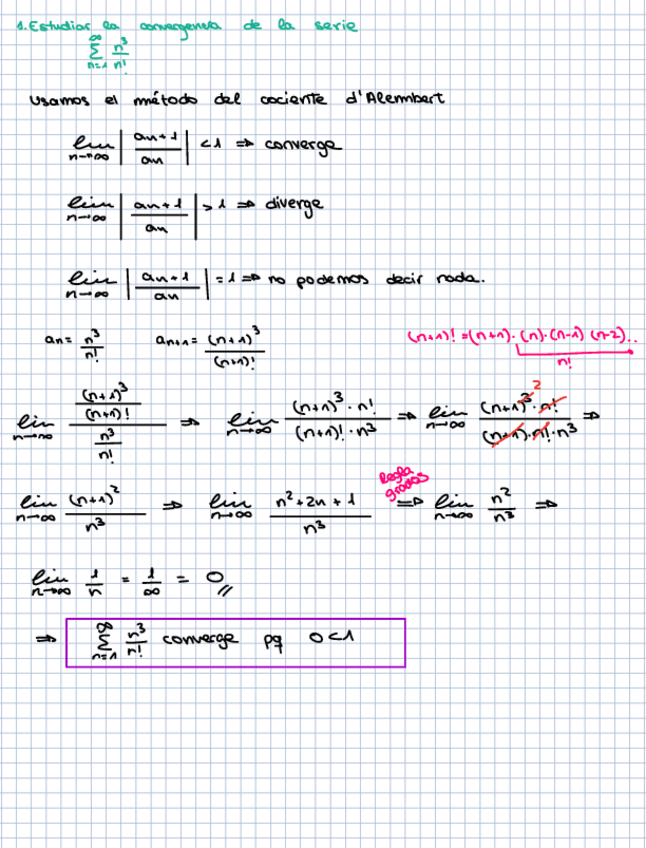 1. Estudiar la convergencia de la serie
∞ Σ n=1 n³/n!
Usamos el método del cociente d'Alembert
lim n→∞ |an+1/an| < 1 ⇒ converge
lim n→∞ |an+1/an| > 1 ⇒ diverge
lim n→∞ |an+1/an| = 1 ⇒ no podemos decir nada.
an = n³/n! an+1 = (n+1)³/(n+1)! (n+1)! = (n+1)·(n)·(n-1)(n-2)..
n!
lim n→∞ ((n+1)³/(n+1)!)/(n³/n!) ⇒ lim n→∞ (n+1)³·n!/(n+1)!·n³ ⇒ lim n→∞ (n+1)³ ²·n!/(n+1)·n!·n³ ⇒
lim n→∞ (n+1)²/n³ ⇒ lim n→∞ n²+2n+1/n³ Regla grados ⇒ lim n→∞ n²/n³ ⇒
lim n→∞ 1/n = 1/∞ = 0//
⇒ ∞ Σ n=1 n³/n! converge pq 0<1